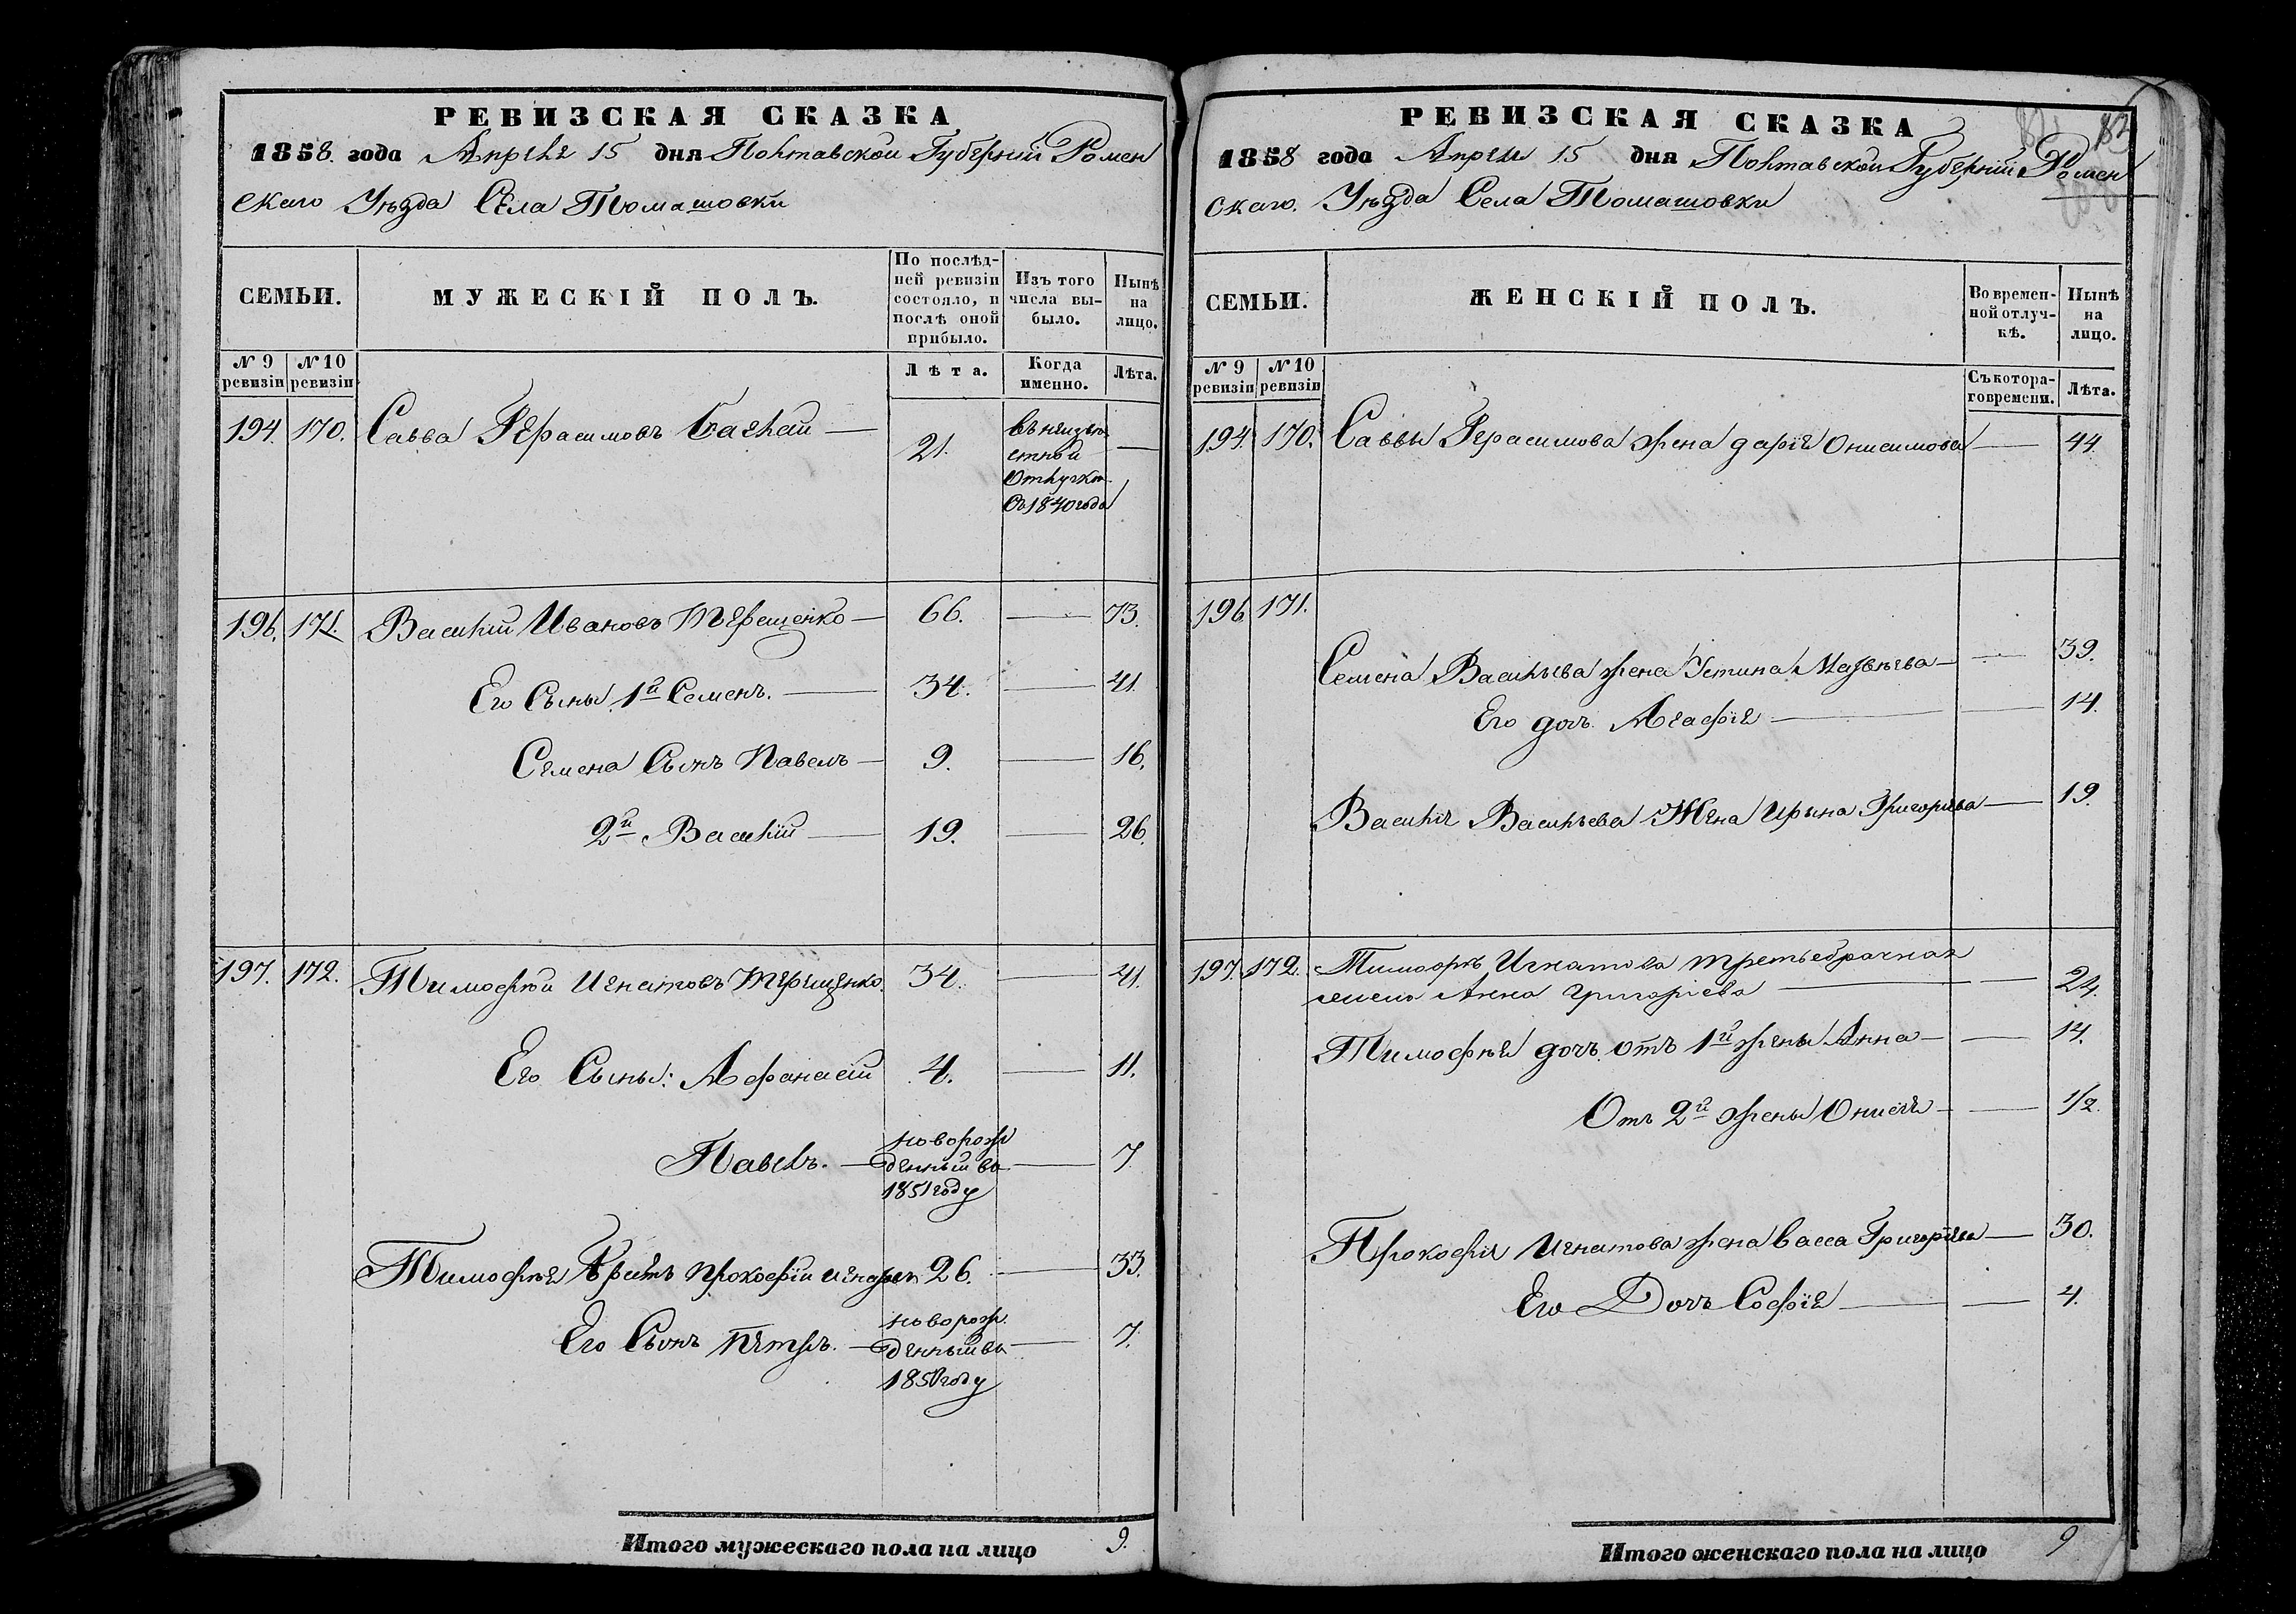 РЕВИЗСКАЯ СКАЗКА
1858. года Апреля 15 дня Полтавской Губерній Ромен
скаго Уѣзда Села Томашовки
СЕМЬИ.
МУЖЕСКІЙ ПОЛЪ.
По послѣд-
ней ревизіи
состояло, и
послѣ оной
прибыло.
Изъ того
числа вы-
было.
Нынѣ
на
лицо.
№ 9
ревизіи
№ 10
ревизіи
Лѣта.
Когда
именно.
Лѣта.
194. 170. Савва Герасимовъ 21. —
въ неизвѣ
стной
Отлучкѣ
Съ 1840 года
196. 171. Василій Ивановъ Терещенко — 66. — 73.
Его Сыны 1й Семенъ. — 34. — 41.
Семена Сынъ Павелъ — 9. — 16.
2й Василій — 19. — 26.
197. 172. Тимофѣй Игнатовъ Терещенко. 34. — 41.
Его Сыны: Афанасій 4. — 11.
Павелъ. — новорож
денный въ — 7
1851 году
Тимофѣя Братъ Прокофій Игнатовъ 26. — 33.
Его Сынъ Петръ. — новорож.
денный въ — 7.
году
Итого мужескаго пола на лицо 9.
РЕВИЗСКАЯ СКАЗКА
82
1858 года Апреля 15 дня Полтавской Губерній Ромен
скаго. Уѣзда Села Томашовки
СЕМЬИ.
ЖЕНСКІЙ ПОЛЪ.
Во времен-
ной отлуч-
кѣ.
Нынѣ
на
лицо.
№ 9
ревизіи
№ 10
ревизіи
Съ котора-
го времени.
Лѣта.
194. 170. Саввы Герасимова жена Дарія Онисимова — 44.
196. 171.
Семена Васильева жена Устина Матвѣева — 39.
Его дочь Агафія — 14.
Василія Васильева Жена Ирына Григорьева — 19.
197. 172. Тимофѣя Игнатова третьебрачная
жена Анна Григоріева — 24.
Тимофѣя дочь отъ 1й жены Анна — 14.
Отъ 2й жены Онисія — 1/2.
Прокофія Игнатова жена Васса Григоріева — 30.
Его Дочь Софія — 4.
Итого женскаго пола на лицо 9